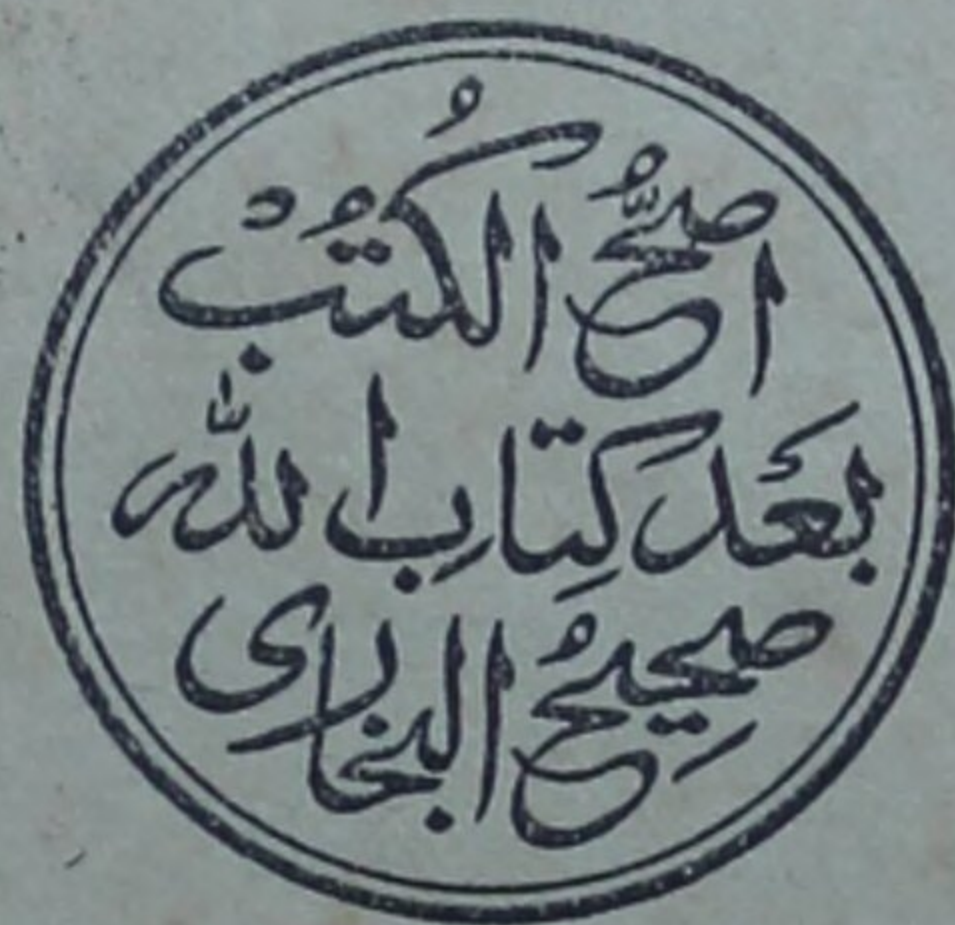 اصحُّ الكُتُبْ
بَعَد كِتَابِ الله
صحِيحُ البخارى